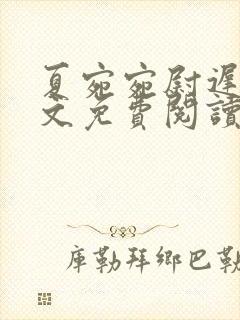 夏宛宛尉遲
文免費閱讀
庫勒拜鄉巴勒